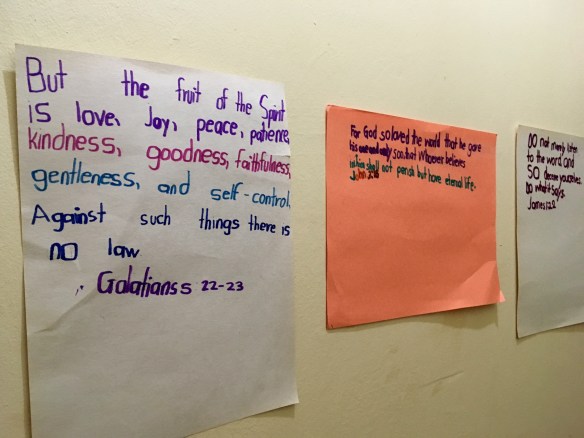 But the fruit of the Spirit
is love, Joy, peace, patience,
kindness, goodness, faithfulness,
gentleness, and self-control.
Against such things there is
no law
Galatians 5 22-23
For God so loved the world that he gave
his one and only son, that Whoever believes
in him shall not perish but have eternal life.
John 3:16
DO not merely listen
to the word, and
SO deceive yourselves.
Do what it says.
James 1:22